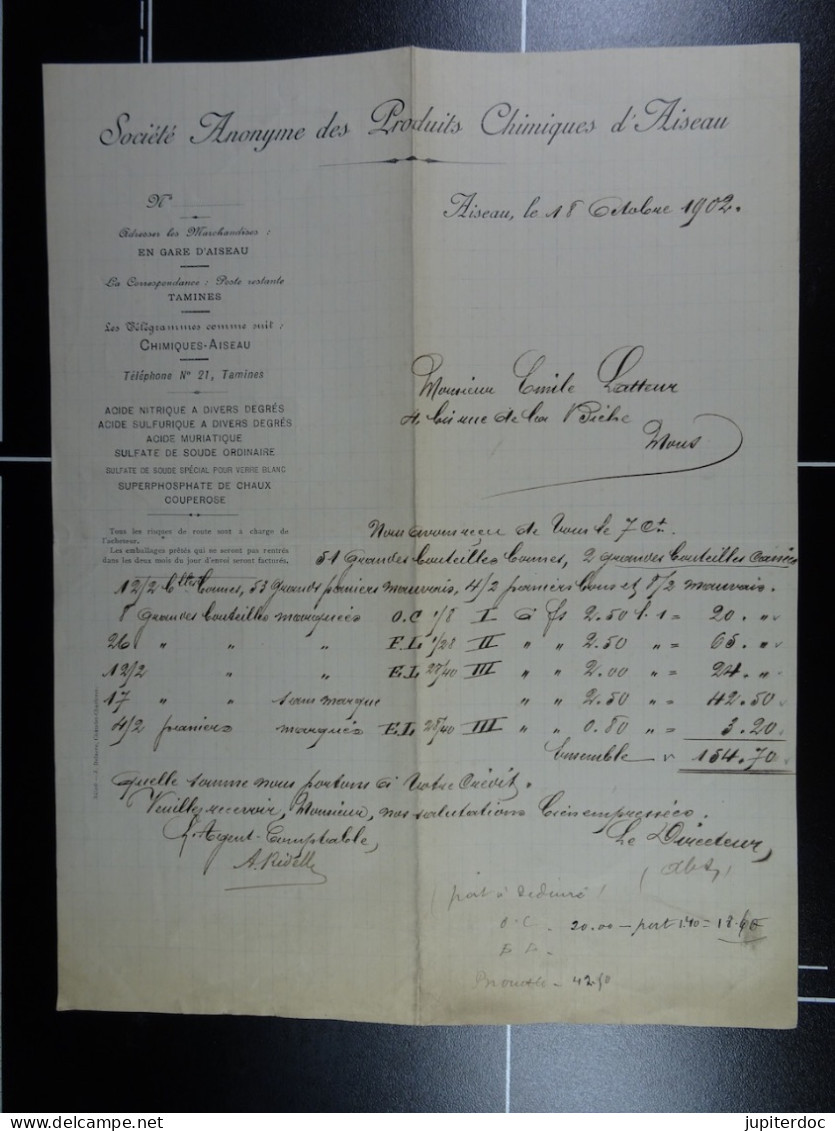 Société Anonyme des Produits Chimiques d'Aiseau
N°
Aiseau, le 18 Octobre 1902.
Adresser les Marchandises :
EN GARE D'AISEAU
La Correspondance : Poste restante
TAMINES
Les Télégrammes comme suit :
CHIMIQUES-AISEAU
Téléphone N° 21, Tamines
Monsieur Emile Latteur
4 bis rue de la Biche
Mons
ACIDE NITRIQUE A DIVERS DEGRÉS
ACIDE SULFURIQUE A DIVERS DEGRÉS
ACIDE MURIATIQUE
SULFATE DE SOUDE ORDINAIRE
SULFATE DE SOUDE SPÉCIAL POUR VERRE BLANC
SUPERPHOSPHATE DE CHAUX
COUPEROSE
Tous les risques de route sont à charge de l'acheteur.
Les emballages prêtés qui ne seront pas rentrés
dans les deux mois du jour d'envoi seront facturés.
Nous avons reçu de Vous le 7 Ct.
51 grandes bouteilles bonnes, 2 grandes bouteilles cassées
12/2 Blles bonnes, 53 grands paniers mauvais, 4/2 paniers bons et 8/2 mauvais.
8 grandes bouteilles marquées O.C 1/8 I à fs 2.50 20. "
26 " " E.L 1/28 II " " 2.50 " = 65. "
12/2 " " E.L 28/40 III " " 2.00 " = 24. "
17 " " sans marque " " 2.50 " = 42.50
4/2 paniers marqués E.L 28/40 III " " 0.80 " = 3.20
Ensemble 154.70
quelle somme nous portons à Votre Crédit.
Veuillez recevoir, Monsieur, nos salutations bien empressées.
L'Agent-Comptable, Le Directeur,
A. Ridelle
( port à déduire )
O.C. 20.00 — port 1.40 = 18.60
E L -
42.50
jupiterdoc